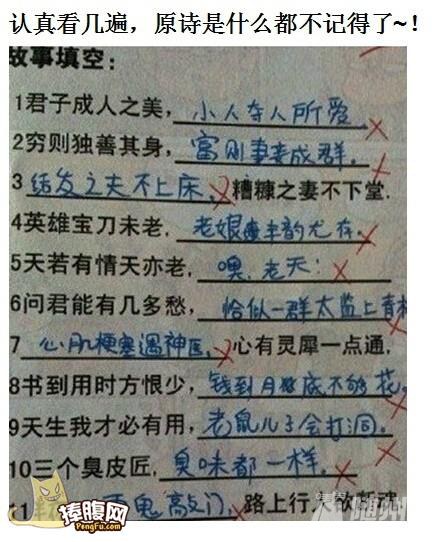 认真看几遍，原诗是什么都不记得了~！
故事填空：
1君子成人之美，小人夺人所爱
2穷则独善其身，富则妻妾成群。
3结发之夫不上床，糟糠之妻不下堂.
4英雄宝刀未老，老娘丰韵尤存。
5天若有情天亦老，噢，老天！
6问君能有几多愁，恰似一群太监上青楼
7心肌梗塞遇神医，心有灵犀一点通，
8书到用时方恨少，钱到月底不够花。
9天生我才必有用，老鼠儿子会打洞。
10三个臭皮匠，臭味都一样。
鬼敲门，路上行人欲断魂
捧腹网
PengFu.com
随州